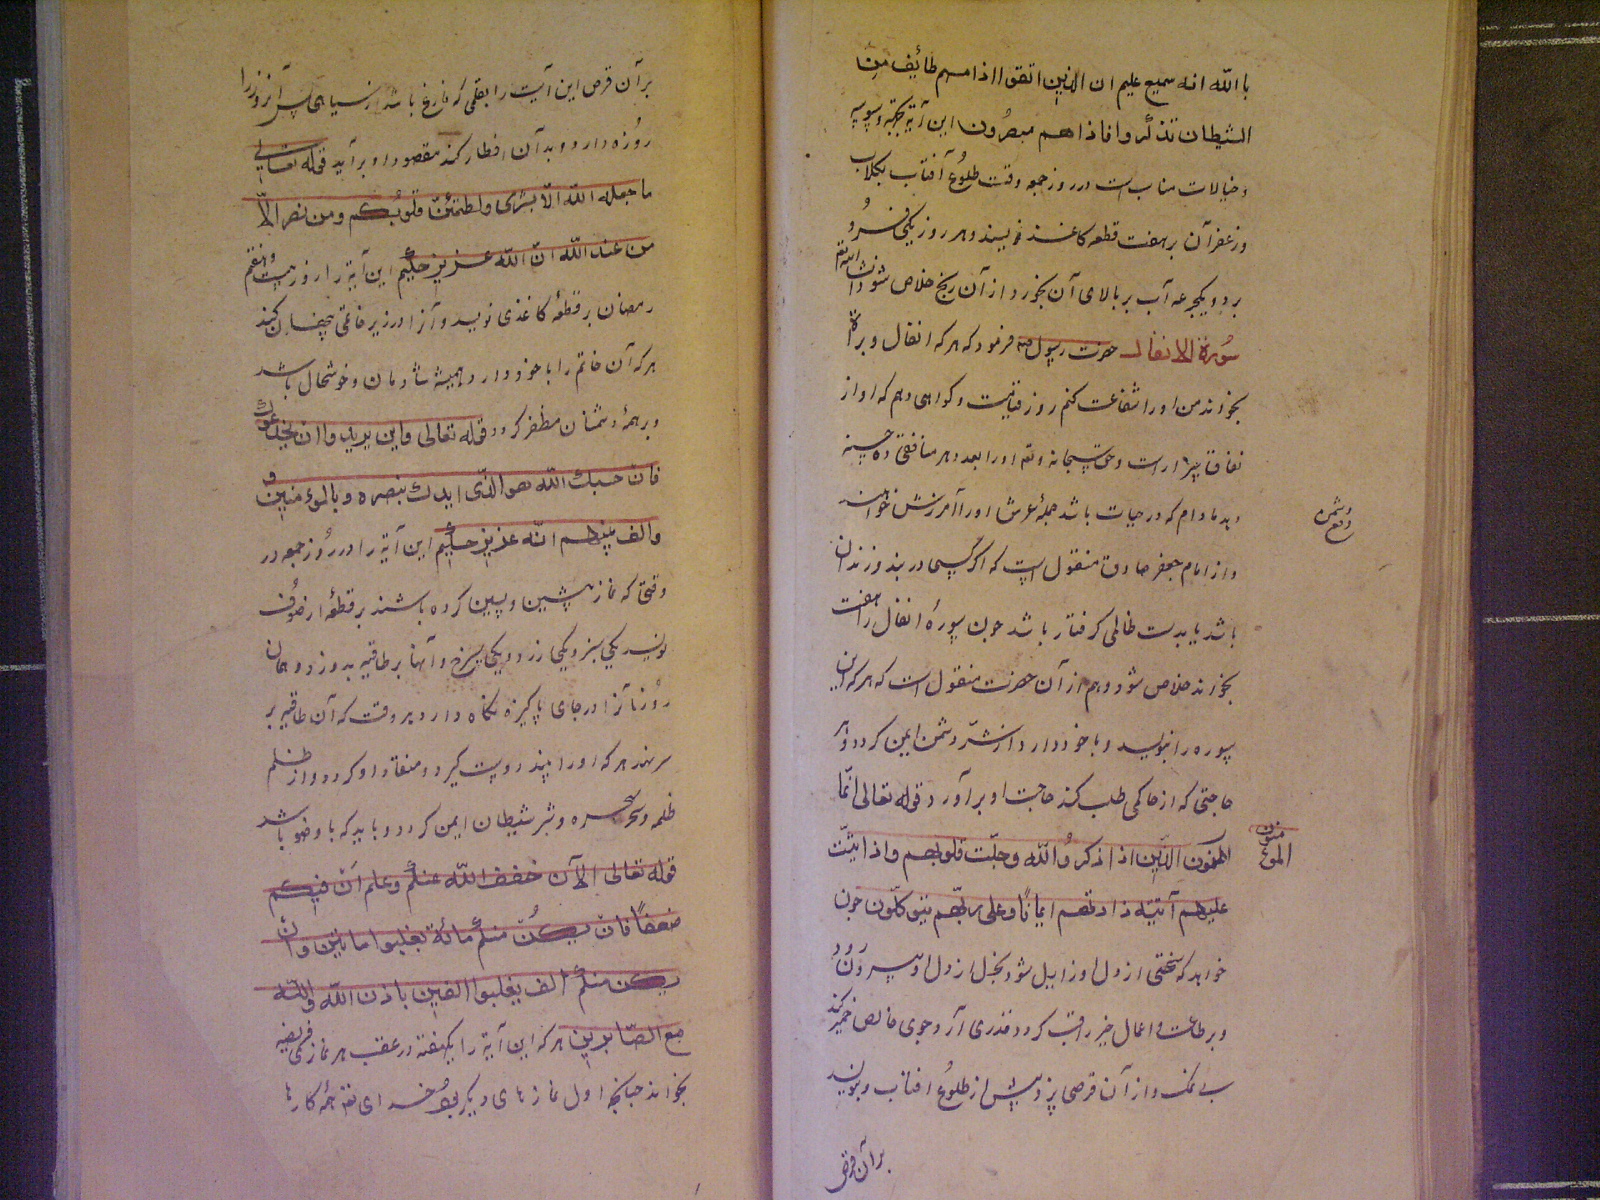 بالله انه سمیع علیم ان الذین اتقوا اذا مسهم طائف من
الشیطان تذکروا فاذا هم مبصرون این آیة بجهة وسوسه
و خیالات مناسب است در روز جمعه وقت طلوع آفتاب بکلاب
وزعفرآن بر هفت قطعه کاغذ نویسند و هر روز یکی فرو
برد و یکجرعه آب بر بالای آن بخورد از آن رنج خلاص شود انشاالله تع
سورة الانفال حضرت رسول فرمود که هر که انفال و براة
بخواند من او را شفاعت کنم روز قیامت و کواهی دهم که او از
نفاق بیزار است و حق سبحانه و تع او را بعدد هر منافقی ده حسنه
بدهد مادام که در حیات باشد حملهٔ عرش او را آمرزش خواهند
دشمن دفع
و از امام جعفر صادق منقول است که اگر کسی در بند و زندان
باشد یا بدست ظالمی کرفتار باشد چون سورهٔ انفال را هفت
بخواند خلاص شود و هم از آن حضرت منقول است که هر که این
سوره را بنویسد و با خود دارد از شر دشمن ایمن کردد و هر
حاجتی که از حاکمی طلب کند حاجت او برآورد قوله تعالی انما
المؤمنون الذین اذا ذکر الله وجلت قلوبهم واذا تلیت
المؤمنون
علیهم آیته زادتهم ایمانًا وعلی ربهم یتوکلون چون
خواهد که سختی از دل او زایل شود و بخل از دل او بیرون رود
و بر طاعت و اعمال خیر راغب کردد قدری آرد جوی خالص خمیر کند
بی نمک و از آن قرصی پزد پیش از طلوع افتاب و بنویسد
بر آن قرص
بر آن قرص این آیت را بقلمی که فارغ باشد از سیاهی پس آنروز را
روزه دارد و بدآن افطار کند مقصود او برآید قوله تعالی
ما جعله الله الا بشری ولتطمئن قلوبکم ومن نصر الا
من عند الله ان الله عزیز حکیم این آیة را روز بیست و هفتم
رمضان بر قطعهٔ کاغذی نویسد و آنرا در زیر خاتمی پنهان کند
هر که آن خاتم را با خود دارد همیشه شادمان و خوشحال باشد
و بر همهٔ دشمنان مظفر کردد قوله تعالی وان یریدوا ان یخدعوک
فان حسبک الله هو الذی ایدک بنصره وبالمؤمنین و
والف بینهم انه عزیز حکیم این آیة را در روز جمعه در
وقتی که نماز پیشین و پسین کرده باشند بر قطعهٔ از صوف
نویسد یکی سبز و یکی زرد و یکی سرخ و آنها بر طاقیه بدوزد و همان
روز آنرا در جای پاکیزه نکاه دارد هر وقت که آن طاقیه بر
سر نهد هر که او را بیند دوست کیرد و منقاد او کردد و از ظلم
ظلمه و سحر سحره و شر شیطان ایمن کردد و باید که با وضو باشد
قوله تعالی الآن خفف الله عنکم وعلم ان فیکم
ضعفًا فان یکن منکم مائة یغلبوا مایتین وان
یکن منکم الف یغلبوا الفین باذن الله والله
مع الصابرین هر که این آیة را یکهفته در عقب هر نماز فریضه
بخواند چنانچه اول نمازهای دیکر بود خدای تع همهٔ کارها